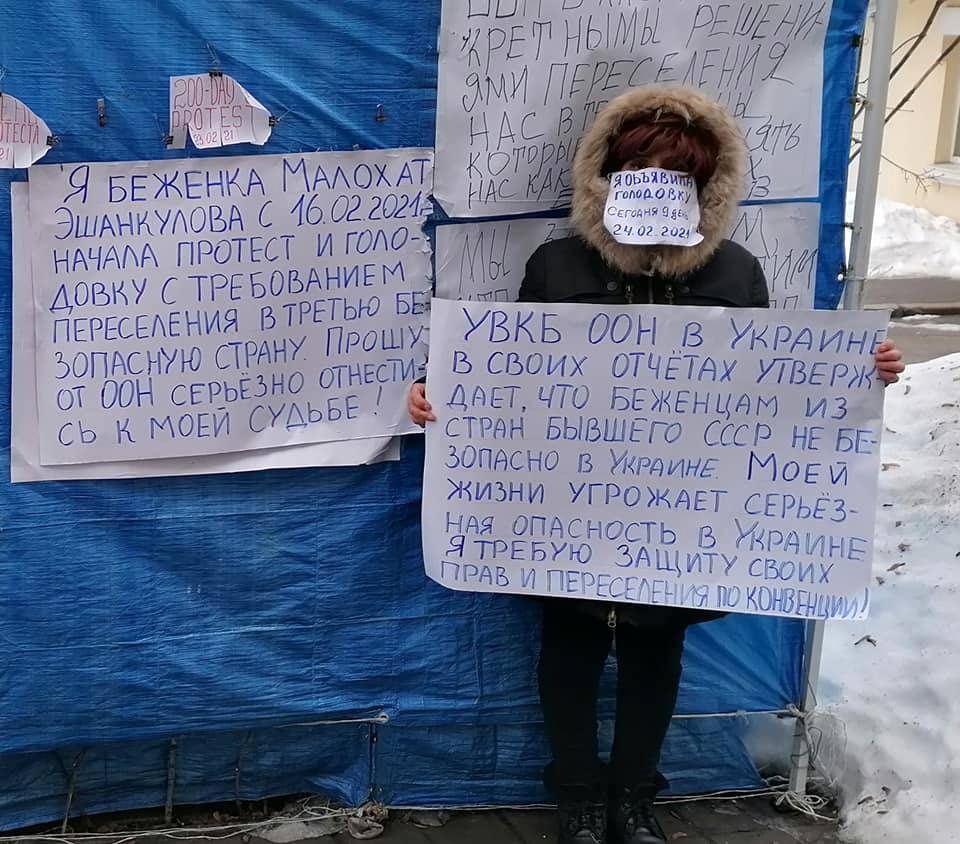 200-DAY
PROTEST
23.02.21
21
Я БЕЖЕНКА МАЛОХАТ
ЭШАНКУЛОВА С 16.02.2021
НАЧАЛА ПРОТЕСТ И ГОЛО-
ДОВКУ С ТРЕБОВАНИЕМ
ПЕРЕСЕЛЕНИЯ В ТРЕТЬЮ БЕ
ЗОПАСНУЮ СТРАНУ. ПРОШУ
ОТ ООН СЕРЬЁЗНО ОТНЕСТИ-
СЬ К МОЕЙ СУДЬБЕ!
КРЕТНЫМЫ РЕШЕНИ
ЯМИ ПЕРЕСЕЛЕНИЯ
НАС В
НАС
МЫ
Я ОБЪЯВИЛА
ГОЛОДОВКУ
СЕГОДНЯ 9 ДЕНЬ
24.02.2021
УВКБ ООН В УКРАИНЕ
В СВОИХ ОТЧЁТАХ УТВЕРЖ
ДАЕТ, ЧТО БЕЖЕНЦАМ ИЗ
СТРАН БЫВШЕГО СССР НЕ БЕ-
ЗОПАСНО В УКРАИНЕ. МОЕЙ
ЖИЗНИ УГРОЖАЕТ СЕРЬЁЗ-
НАЯ ОПАСНОСТЬ В УКРАИНЕ
Я ТРЕБУЮ ЗАЩИТУ СВОИХ
ПРАВ И ПЕРЕСЕЛЕНИЯ ПО КОНВЕНЦИИ!